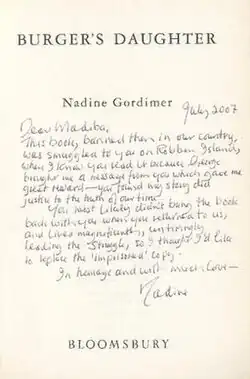 BURGER'S DAUGHTER
Nadine Gordimer
July 2007
Dear Madiba,
This book, banned then in our country,
was smuggled to you on Robben Island,
where I know you read it because George
brought me a message from you which gave me
great reward — you found my story did
justice to the truth of our time.
You most likely didn't bring the book
back with you when you returned to us,
and lived magnificently, untiringly
leading the Struggle, so I thought I'd like
to replace the 'imprisoned' copy.
In homage and with much love —
Nadine
BLOOMSBURY